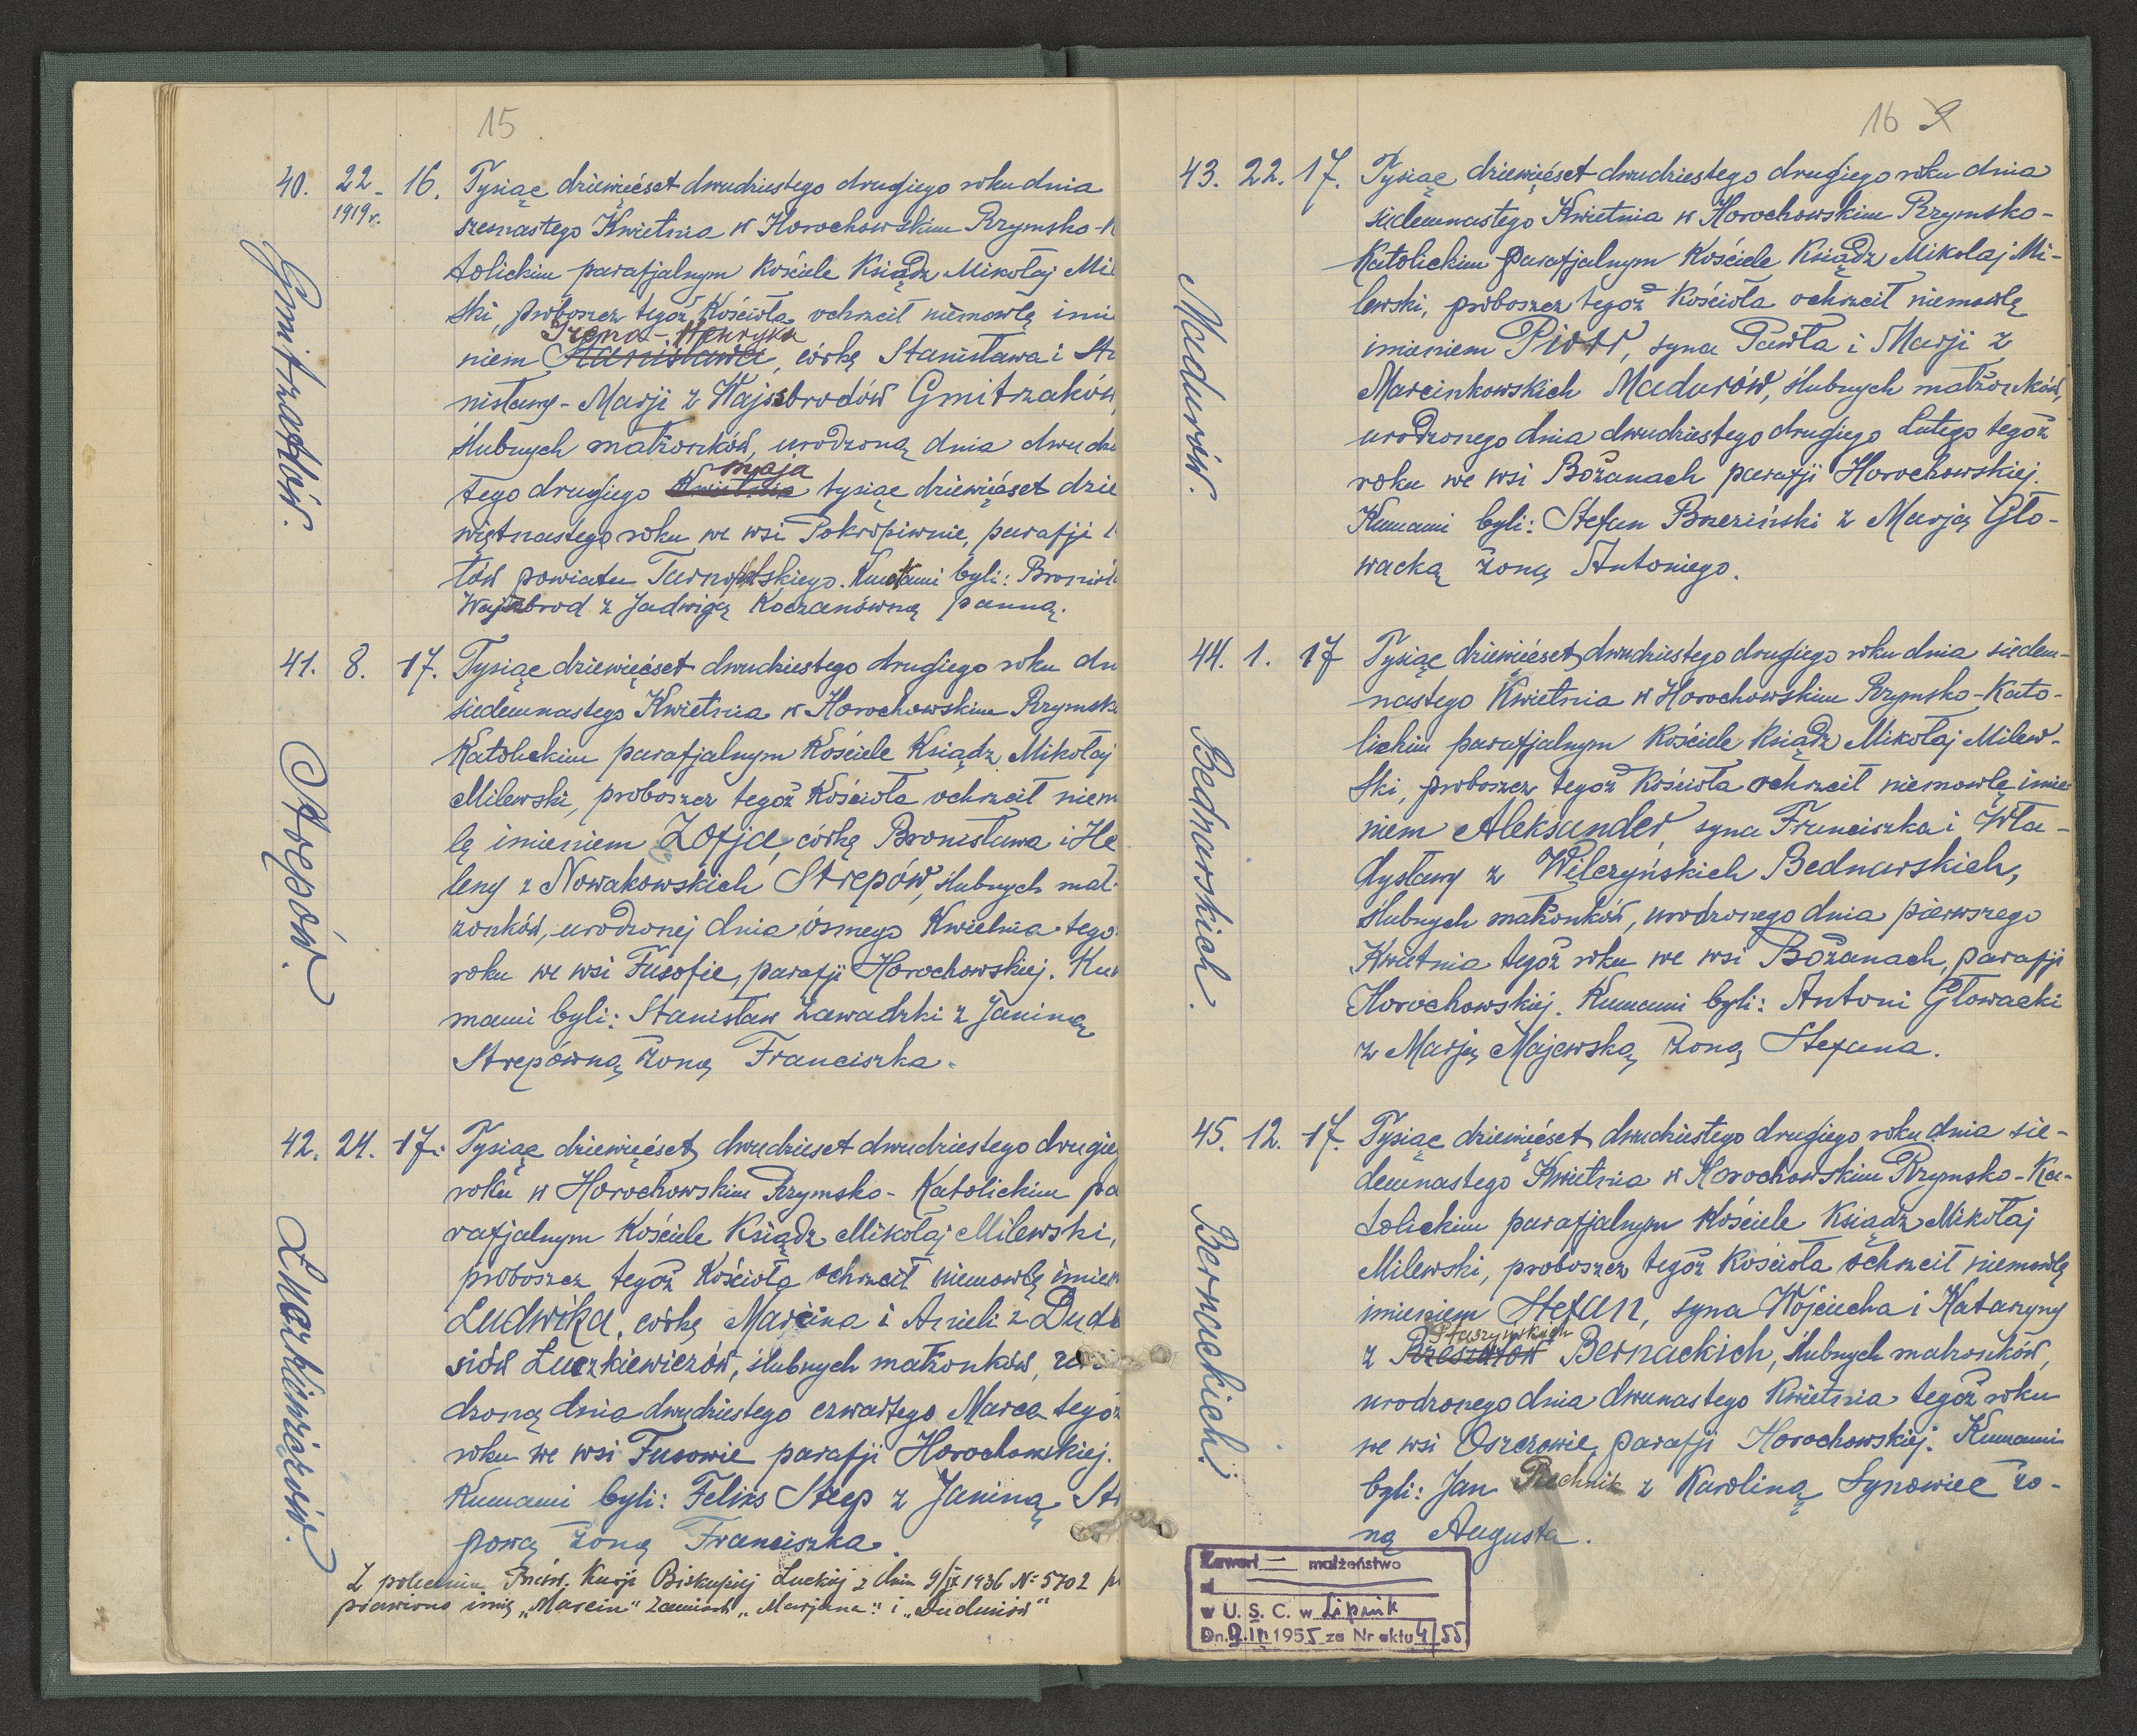 15
40. 22 - 16. Tysiąc dziewięćset dwudziestego drugiego roku dnia
1919 r. szesnastego Kwietnia w Horochowskim Rzymsko-K
tolickim parafjalnym Kościele Ksiądz Mikołaj Mi
ski, proboszcz tegoż Kościoła ochrzcił niemowlę imie
Irena - Henryka
niem Stanisława, córkę Stanisława i St
nisławy - Marji z Wajsbrodów Gmitrzaków,
ślubnych małżonków, urodzoną dnia dwudzi
maja
tego drugiego Kwietnia tysiąc dziewięćset dzie
więtnastego roku we wsi Pokropiwnie, parafji
łów powiatu Tarnopolskiego. Kumami byli: Broni
Wajsbrod z Jadwigą Koczanówną panną.
Gmitrzaków.
41. 8. 17. Tysiąc dziewięćset dwudziestego drugiego roku dn
siedemnastego Kwietnia w Horochowskim Rzymsk
Katolickim parafjalnym Kościele Ksiądz Mikołaj
Milewski, proboszcz tegoż Kościoła ochrzcił niem
lę imieniem Zofja, córkę Bronisława i He
leny z Nowakowskich Strepów, ślubnych mał-
żonków, urodzonej dnia ósmego Kwietnia tego
roku we wsi Fusofie, parafji Horochowskiej. Ku
mami byli: Stanisław Zawadzki z Janiną
Strepówną żoną Franciszka.
Strepów.
42. 24. 17. Tysiąc dziewięćset dwudzieset dwudziestego drugie
roku w Horochowskim Rzymsko-Katolickim pa
rafjalnym Kościele Ksiądz Mikołaj Milewski,
proboszcz tegoż Kościoła ochrzcił niemowlę imien
Ludwika, córkę Marcina i Anieli z Dud
siów Łuczkiewiczów, ślubnych małżonków, uro
dzoną dnia dwudziestego czwartego Marca tegoż
roku we wsi Fusowie parafji Horochowskiej.
Kumami byli: Feliks Strep z Janiną St
pową żoną Franciszka.
Łuczkiewiczów.
Z polecenia Kurji Biskupiej Łuckiej z dnia 9/IX 1936 № 5702
prawiono imię „Marcin" zamiast „Marjana" i „Dudusiów"
16 9
43. 22. 17. Tysiąc dziewięćset dwudziestego drugiego roku dnia
siedemnastego Kwietnia w Horochowskim Rzymsko-
Katolickim parafjalnym Kościele Ksiądz Mikołaj Mi-
lewski, proboszcz tegoż Kościoła ochrzcił niemowlę
imieniem Piotr, syna Pawła i Marji z
Marcinkowskich Madurów, ślubnych małżonków,
urodzonego dnia dwudziestego drugiego Lutego tegoż
roku we wsi Bożanach parafji Horochowskiej.
Kumami byli: Stefan Brzeziński z Marją Gło-
wacką żoną Antoniego.
Madurów.
44. 1. 17 Tysiąc dziewięćset dwudziestego drugiego roku dnia siedem-
nastego Kwietnia w Horochowskim Rzymsko-Kato-
lickim parafjalnym Kościele Ksiądz Mikołaj Milew-
ski, proboszcz tegoż Kościoła ochrzcił niemowlę imie
niem Aleksander, syna Franciszka i Wła-
dysławy z Wilczyńskich Bednarskich,
ślubnych małżonków, urodzonego dnia pierwszego
Kwietnia tegoż roku we wsi Bożanach, parafji
Horochowskiej. Kumami byli: Antoni Głowacki
z Marją Majewską żoną Stefana.
Bednarskich.
45. 12. 17. Tysiąc dziewięćset dwudziestego drugiego roku dnia sie-
demnastego Kwietnia w Horochowskim Rzymsko-Ka-
tolickim parafjalnym Kościele Ksiądz Mikołaj
Milewski, proboszcz tegoż Kościoła ochrzcił niemowlę
imieniem Stefan, syna Wojciecha i Katarzyny
Ptaszyńskich
z Rzeszutów Bernackich, ślubnych małżonków,
urodzonego dnia dwunastego Kwietnia tegoż roku
we wsi Oszczowie, parafji Horochowskiej. Kumami
byli: Jan Piechnik z Karoliną Synowiec żo-
ną Augusta.
Bernackich.
Zawarł — małżeństwo
z
w U. S. C. w Lipnik
Dn. 9.IV 1955 za Nr aktu 4/55